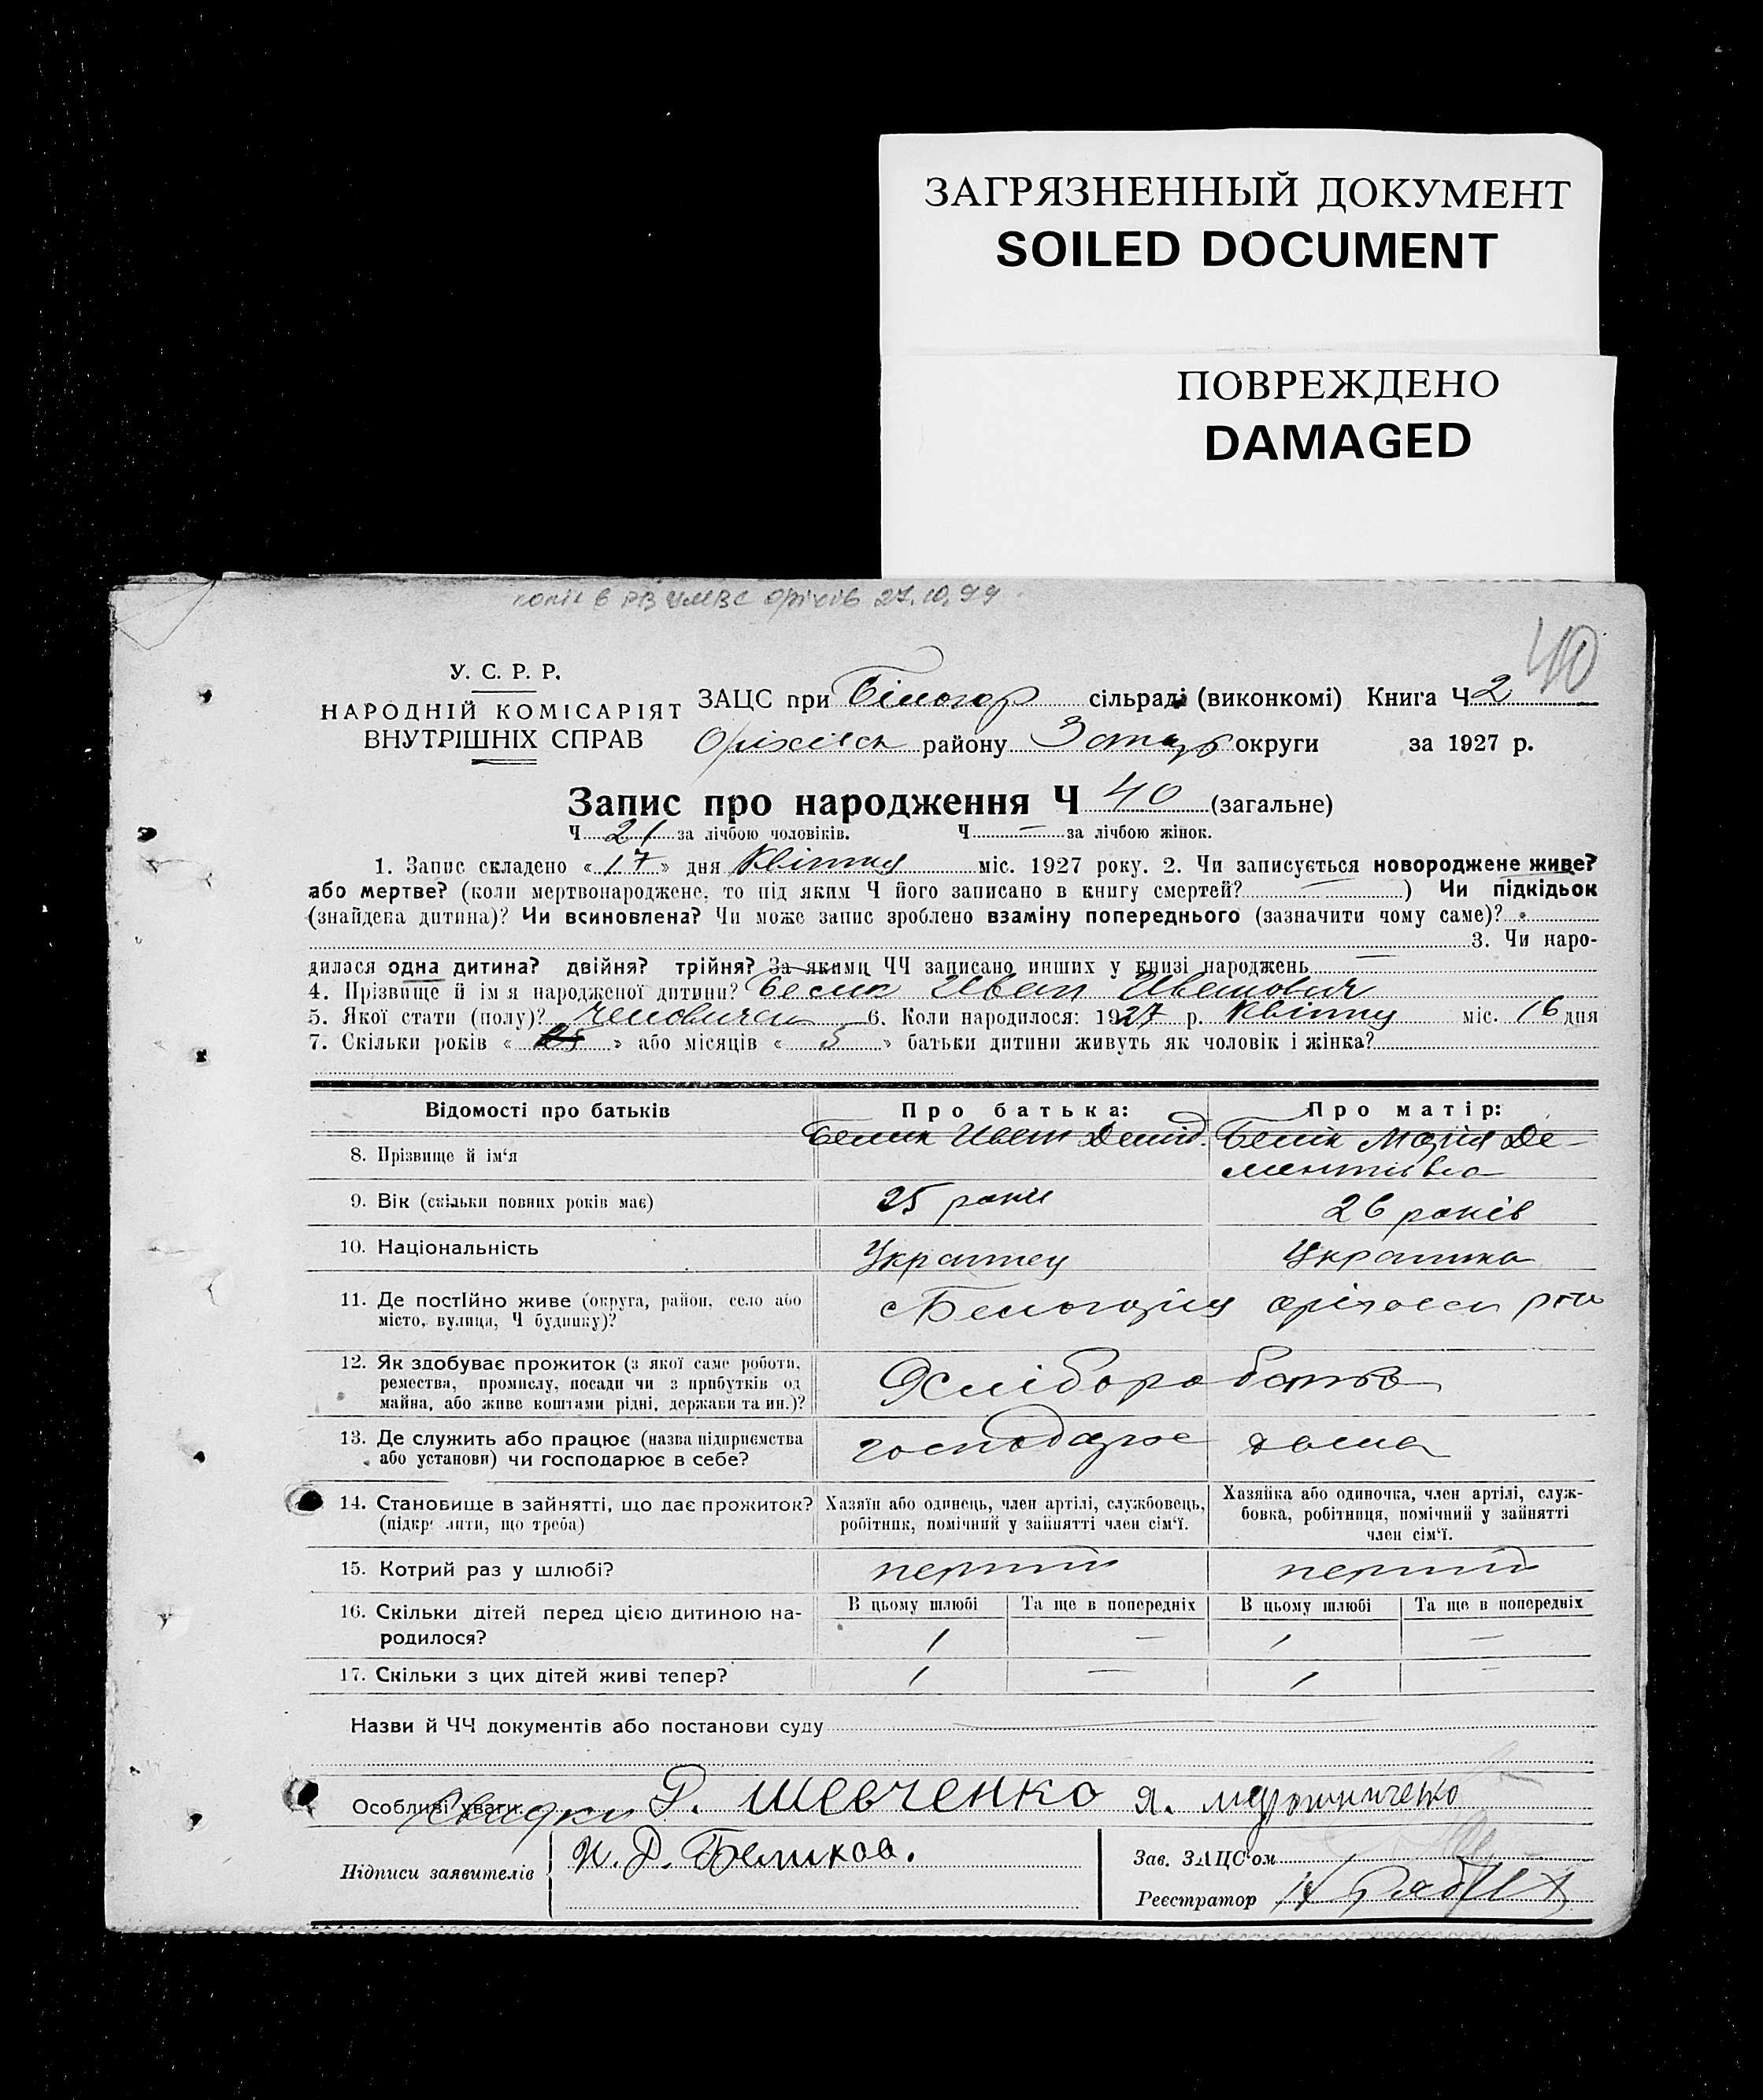 ЗАГРЯЗНЕННЫЙ ДОКУМЕНТ
SOILED DOCUMENT
ПОВРЕЖДЕНО
DAMAGED
копії в РВ УМВС Оріхів 27.10.99
40
У. С. Р. Р.
НАРОДНІЙ КОМІСАРІЯТ
ВНУТРІШНІХ СПРАВ
ЗАЦС при Білогор сільраді (виконкомі) Книга Ч 2
Оріхівск району Запор округи за 1927 р.
Запис про народження Ч 40 (загальне)
Ч 21 за лічбою чоловіків. Ч — за лічбою жінок.
1. Запис складено « 17 » дня Квітня міс. 1927 року. 2. Чи записується новороджене живе?
або мертве? (коли мертвонароджене, то під яким Ч його записано в книгу смертей? — ) Чи підкідьок
(знайдена дитина)? Чи всиновлена? Чи може запис зроблено взаміну попереднього (зазначити чому саме)?
3. Чи наро-
дилася одна дитина? двійня? трійня? За якими ЧЧ записано инших у книзі народжень —
4. Прізвище й ім я народженої дитини? Белик Иван Иванович
5. Якої стати (полу)? Человичеи 6. Коли народилося: 1927 р. Квітня міс. 16 дня
7. Скільки років « » або місяців « 5 » батьки дитини живуть як чоловік і жінка?
Відомості про батьків Про батька: Про матір:
8. Прізвище й ім‘я Белик Иван Демид. Белік Марія Де-
ментіівна
9. Вік (скільки повних років має) 25 роки 26 років
10. Національність Украінец Украінка
11. Де постІйно живе (округа, район, село або
місто, вулиця, Ч будинку)? с Белогорія
12. Як здобуває прожиток (з якої саме роботи,
ремества, промислу, посади чи з прибутків од
майна, або живе коштами рідні, держави та ин.)? Хліборобство
13. Де служить або працює (назва підприємства
або установи) чи господарює в себе? господарює дома
14. Становище в зайнятті, що дає прожиток? Хазяїн або одинець, член артілі, службовець,
робітник, помічний у зайнятті член сім‘ї. Хазяйка або одиночка, член артілі, служ-
бовка, робітниця, помічний у зайнятті
член сім‘ї.
(підкреслити, що треба)
15. Котрий раз у шлюбі? перший перший
16. Скільки дітей перед цією дитиною на-
родилося? В цьому шлюбі Та ще в попередніх В цьому шлюбі Та ще в попередніх
1 — 1 —
17. Скільки з цих дітей живі тепер? 1 — 1 —
Назви й ЧЧ документів або постанови суду
Особливі уваги. Свидки Г. Шевченко Я. Мірошниченко
Підписи заявителів И. Д. Беликов.
Зав. ЗАЦС‘ом
Реєстратор